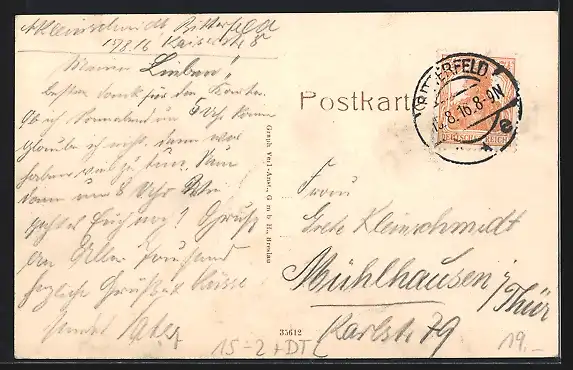 A Kleinschmidt Bitterfeld
17.8.16 Kaiserstr 8
Meine Lieben"
Besten Dank für die Karte.
Ob ich Sonnabend um 5 Uhr komme
glaube ich nicht, denn wir
haben viel zu tun.
dann um 8 Uhr
Euch noch? Grüße
an Alle Tausend
herzliche Grüße & Küsse
sendet
Postkarte
BITTERFELD
8.16.8-9N
e
DEUTSCHES REICH
Graph. Verl.-Anst., G. m. b. H., Breslau
Frau
Grete Kleinschmidt
Mühlhausen i/Thür
Karlstr. 79
35612
15-2+DT
19.-